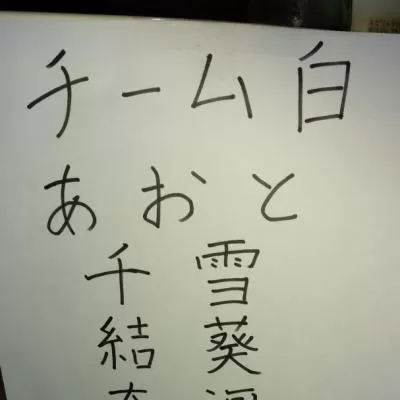 チーム白
あおと
千雪
結葵